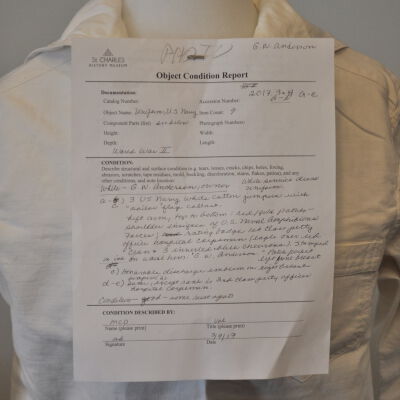 PHOTO
G.W. Anderson
ST. CHARLES
HISTORY MUSEUM
Object Condition Report
Documentation:
2017.
a-e
Catalog Number:
Accession Number:
Object Name: Uniform, U.S. Navy
Item Count: 9
Component Parts (list): see below
Photograph Numbers:
Height:
Width:
Depth:
Length:
World War II
CONDITION:
Describe structural and surface condition (e.g. tears, losses, cracks, chips, holes, foxing,
abrasions, scratches, tape residues, mold, buckling, discoloration, stains, flakes, patina), and any
other conditions, and note location:
white service dress
White - G.W. Anderson, owner
uniform
3 US Navy White cotton jumpers with
"sailor" flap collars.
shoulder insignia of U.S. Naval Amphibious
Forces; rating badge 1st class petty
officer hospital corpsman (eagle over red
cross & 3 inverted white chevrons). Stamped
on waist hem: "G.W. Anderson".
Honorable discharge emblem on right breast
d-e) Same, except rank is 3rd class petty officer
hospital corpsman.
Condition - good - some rust spots
CONDITION DESCRIBED BY:
MCD
vol
Name (please print)
Title (please print)
Signature
Date